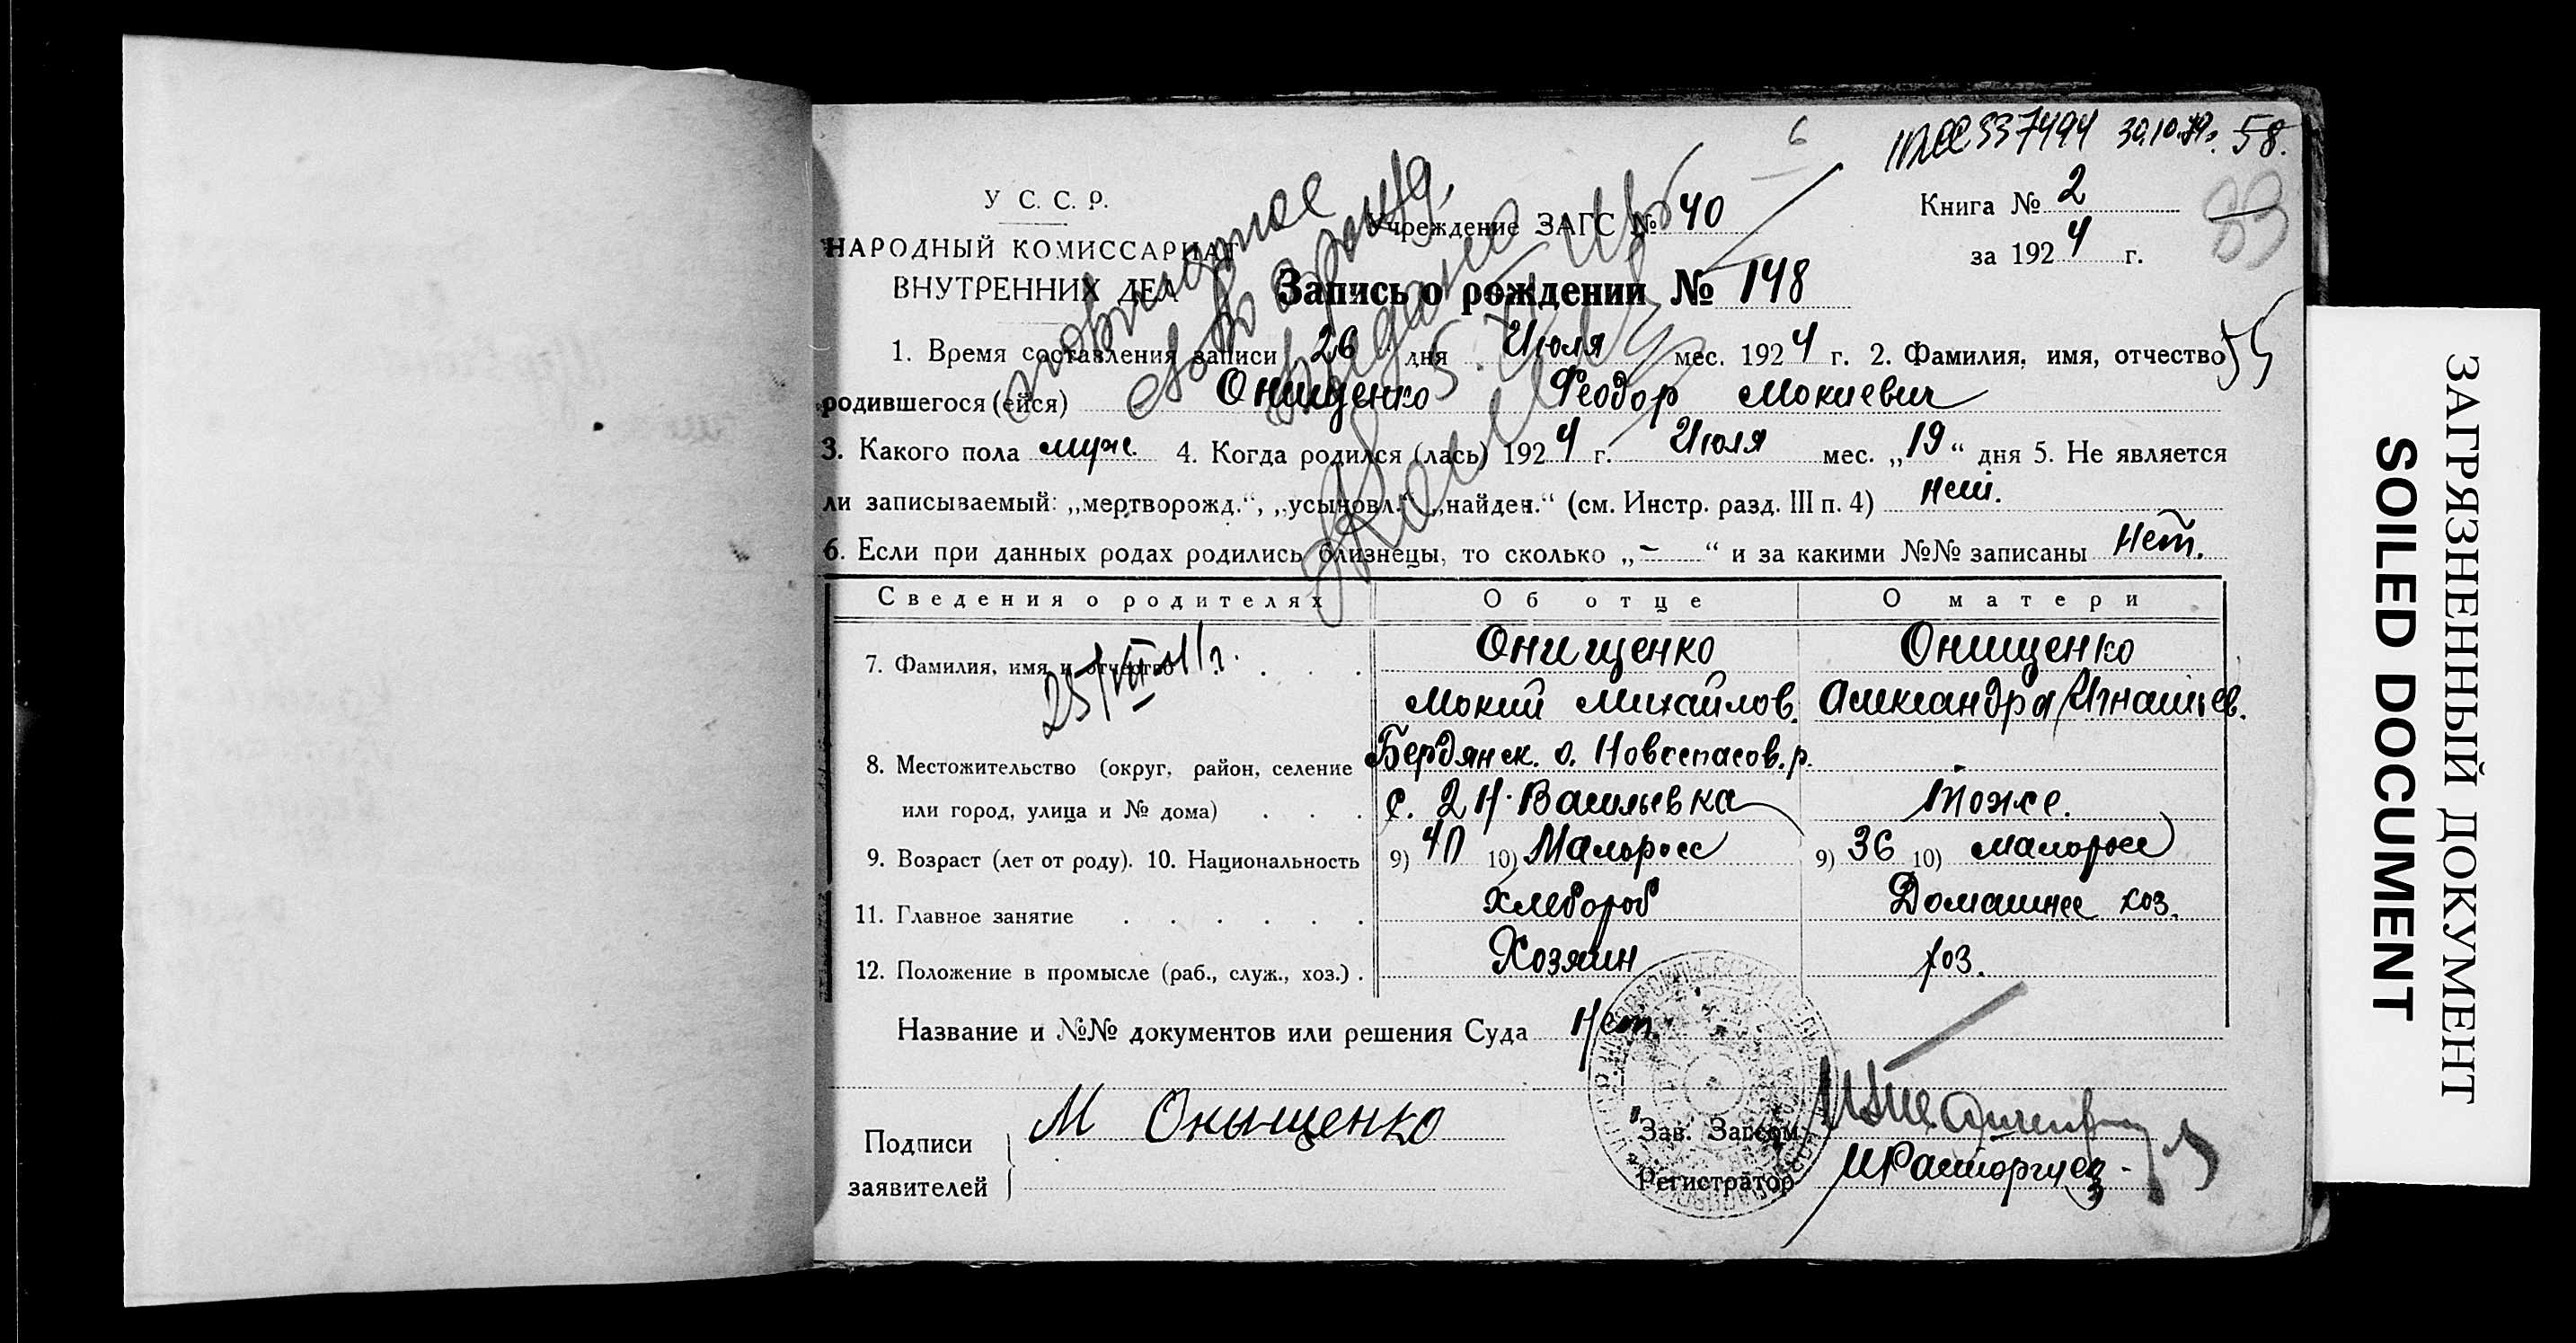 6
337494 30.10.79г. 58.
У С. С. Р.
НАРОДНЫЙ КОМИССАРИАТ
ВНУТРЕННИХ ДЕЛ
Учреждение ЗАГС № 40
Книга № 2
за 1924 г.
83
Запись о рождении № 148
повторное
свидет.
выдано
55
1. Время составления записи 26 дня Июля мес. 1924 г. 2. Фамилия, имя, отчество
родившегося (ейся) Онищенко Феодор Мокиевич
3. Какого пола муж. 4. Когда родился (лась) 1924 г. Июля мес. „19“ дня 5. Не является
ли записываемый: „мертворожд.“, „усыновл.“ „найден.“ (см. Инстр. разд. III п. 4) нет.
6. Если при данных родах родились близнецы, то сколько „-“ и за какими №№ записаны Нет.
Сведения о родителях Об отце О матери
7. Фамилия, имя и отчество . . . Онищенко Онищенко
25/VII 41 г.
Мокий Михайлов. Александра Игнатьев.
8. Местожительство (округ, район, селение Бердянск. о. Новоспасов. р.
или город, улица и № дома) . . . с. 2 Н. Васильевка тоже.
9. Возраст (лет от роду). 10. Национальность 9) 40 10) Малоросс 9) 36 10) малоросс
11. Главное занятие . . . . . . Хлебороб Домашнее хоз.
12. Положение в промысле (раб., служ., хоз.) . Хозяин хоз.
Название и №№ документов или решения Суда Нет.
Подписи М Оныщенко
заявителей
Зав. Загсом
Регистратор И Расторгуев
ЗАГРЯЗНЕННЫЙ ДОКУМЕНТ
SOILED DOCUMENT